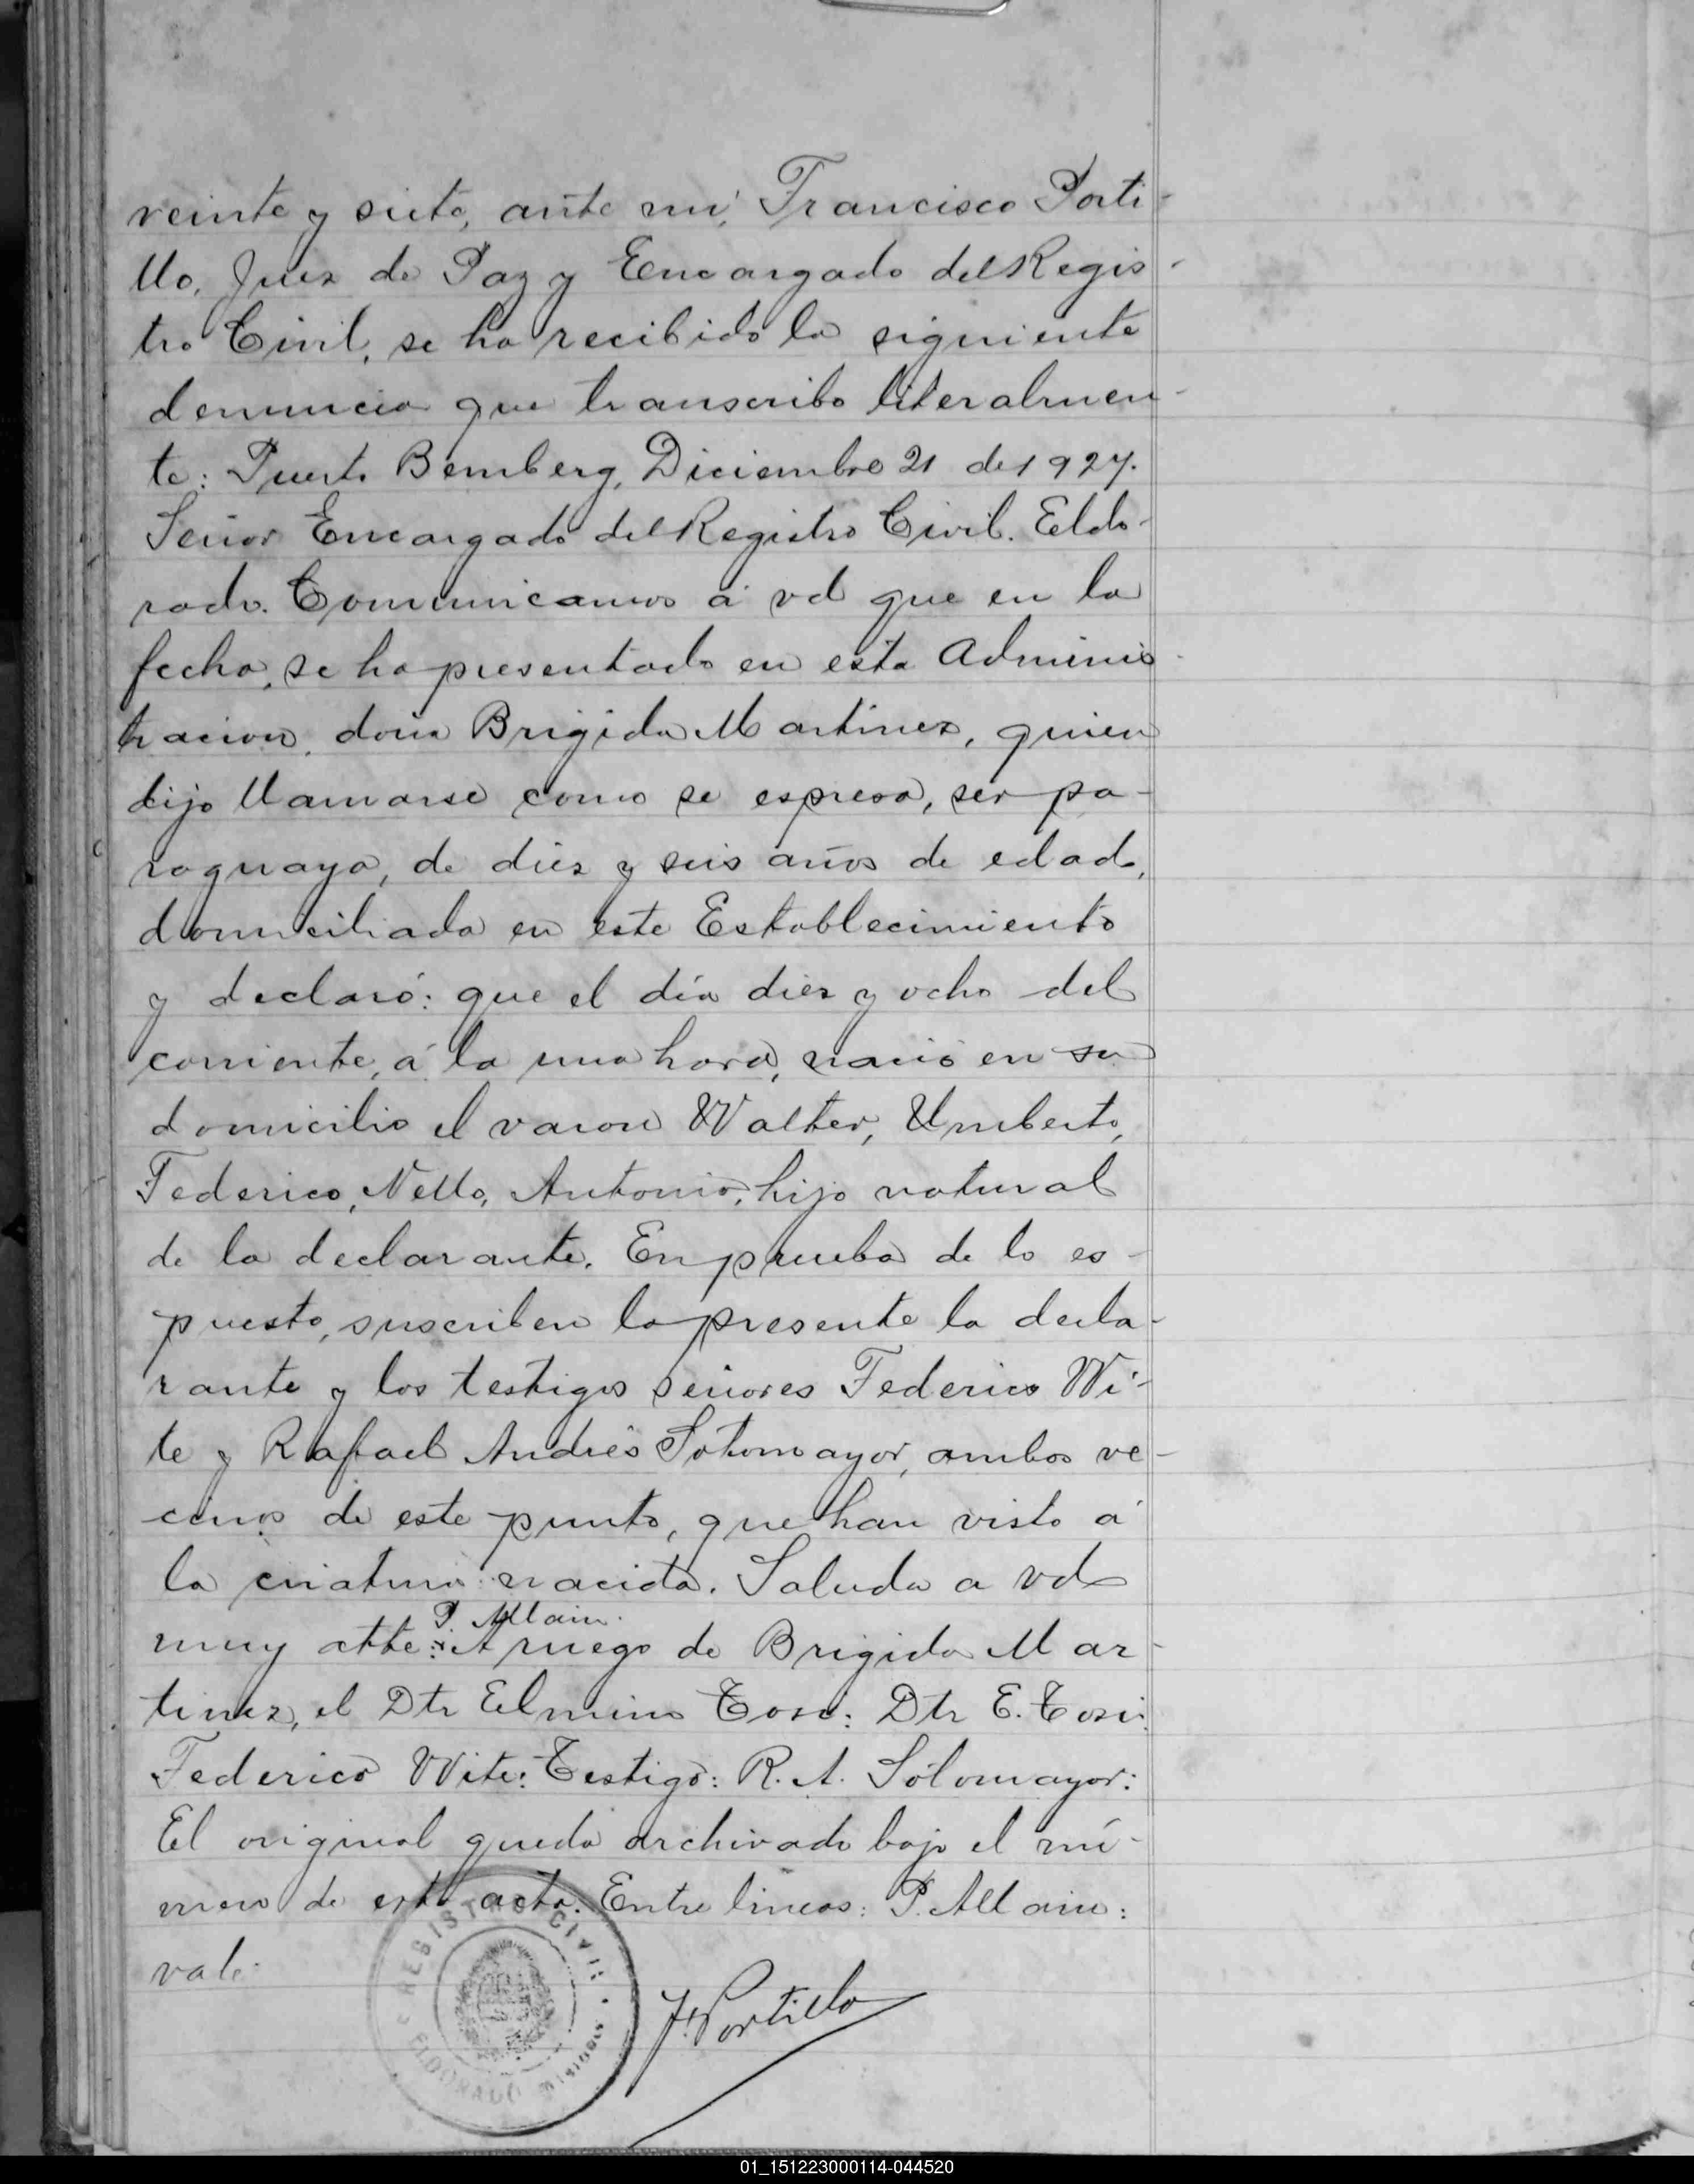 veinte y siete, ante mi, Francisco Porti-
llo, Juez de Paz y Encargado del Regis-
tro Civil, se ha recibido la siguiente
denuncia que transcribo literalmen-
te: Puerto Bemberg, Diciembre 21 de 1927.
Señor Encargado del Registro Civil. Eldo-
rado. Comunicamos á vd que en la
fecha, se ha presentado en esta Adminis-
tracion, doña Brigida Martinez, quien
dijo llamarse como se espresa, ser pa-
raguaya, de diez y seis años de edad,
domiciliada en este Establecimiento
y declaró: que el día diez y ocho del
corriente, á la una hora, nació en su
domicilio el varon Walter, Umberto,
Federico, Nello, Antonio, hijo natural
de la declarante. En prueba de lo es-
puesto, suscriben la presente la decla-
rante y los testigos señores Federico Wi-
te y Rafael Andrés Sotomayor, ambos ve-
cinos de este punto, que han visto á
la criatura nacida. Saluda a vd
P. Allain.
muy atte: A ruego de Brigida Mar-
tinez, el Dtr Elmino Tosi: Dtr E. Tosi:
Federico Wite: Testigo: R. A. Sotomayor:
El original queda archivado bajo el nú-
mero de esta acta. Entre lineas: P. Allain:
vale.
REGISTRO CIVIL
ELDORADO MISIONES
F. Portillo
01_151223000114-044520